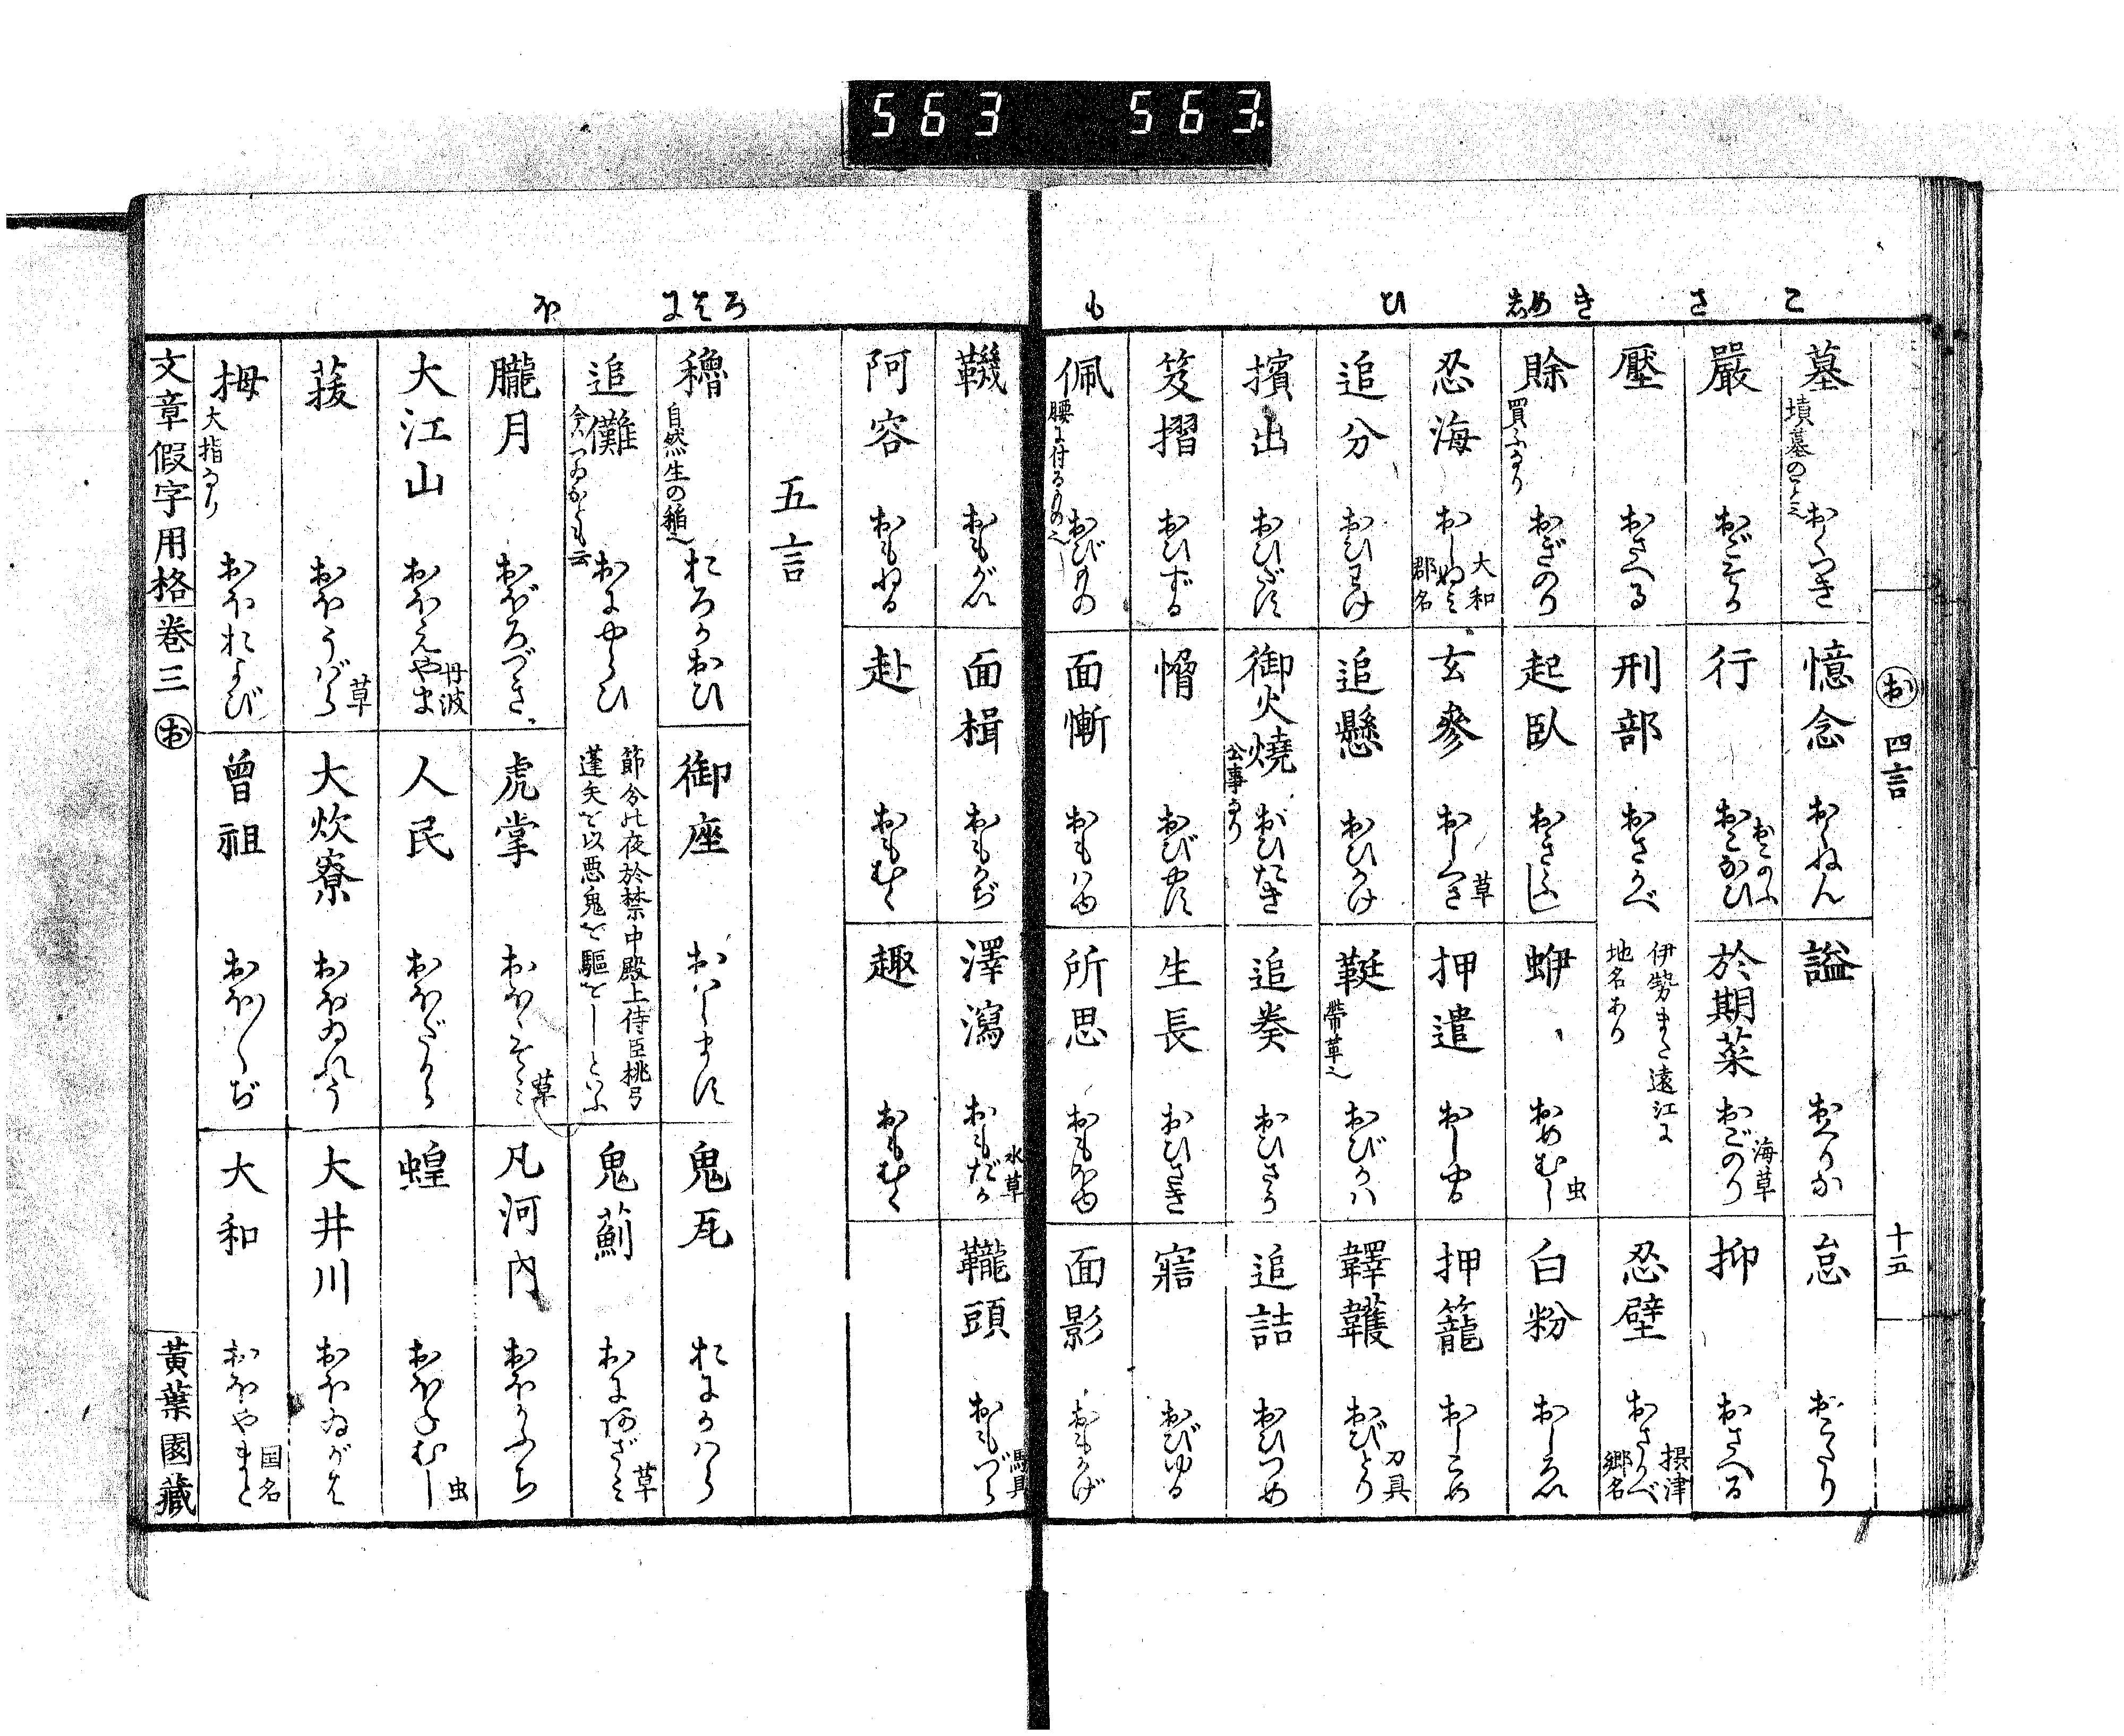 563 563
こ さ き め し ひ も
お 四言 十五
墓 墳墓のこと也 おくつき 憶念 おくねん 謚 おくりな 怠 おこたり
嚴 おごそか 行 おこなふ おこなひ 於期菜 おごのり 海草 抑 おさへる
壓 おさへる 刑部 おさかべ 伊勢また遠江に地名あり 忍壁 おさかべ 摂津郷名
賖 買ふなり おぎのり 起臥 おきふし 蛜 おめむし 虫 白粉 おしろい
忍海 おしぬみ 大和郡名 玄參 おしくさ 草 押遣 おしやる 押籠 おしこめ
追分 おひわけ 追懸 おひかけ 鞓 帶革也 おびかは 韘韄 おびとり 刀具
擯出 おひだす 御火燒 公事なり おひたき 追奏 おひさう 追詰 おひつめ
笈摺 おひずる 愶 おびやす 生長 おひさき 寤 おびゆる
佩 腰に付るもの也 おびもの 面慚 おもはゆ 所思 おもほゆ 面影 おもかげ
ろ そ に ほ
鞿 おもがい 面楫 おもかぢ 澤瀉 おもだか 水草 鞴頭 おもづら 馬具
阿容 おもねる 赴 おもむく 趣 おもむく
五言
穭 自然生の稲也 おろかおひ 御座 おはします 鬼瓦 おにかはら
追儺 今ハつゐなとも云 おにやらひ 節分の夜於禁中殿上侍臣桃弓蓬矢を以悪鬼を驅をしといふ 鬼薊 おにあざみ 草
朧月 おぼろづき 虎掌 おほそみ 草 凡河内 おほかふち
大江山 おほえやま 丹波 人民 おほだから 蝗 おほねむし 虫
菝 おほうばら 草 大炊寮 おほゐれう 大井川 おほゐがは
拇 大指なり おほおよび 曽祖 おほぢ 大和 おほやまと 国名
文章假字用格 巻三 お 黄葉園藏